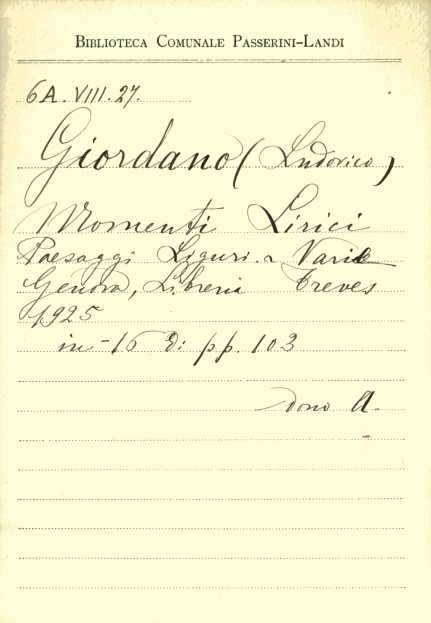 BIBLIOTECA COMUNALE PASSERINI-LANDI
6A. VIII. 27.
Giordano (Ludovico)
Momenti Lirici
Paesaggi Liguri e Varie
Genova, Libreria Treves
1925
in-16 di pp. 103
dono A.